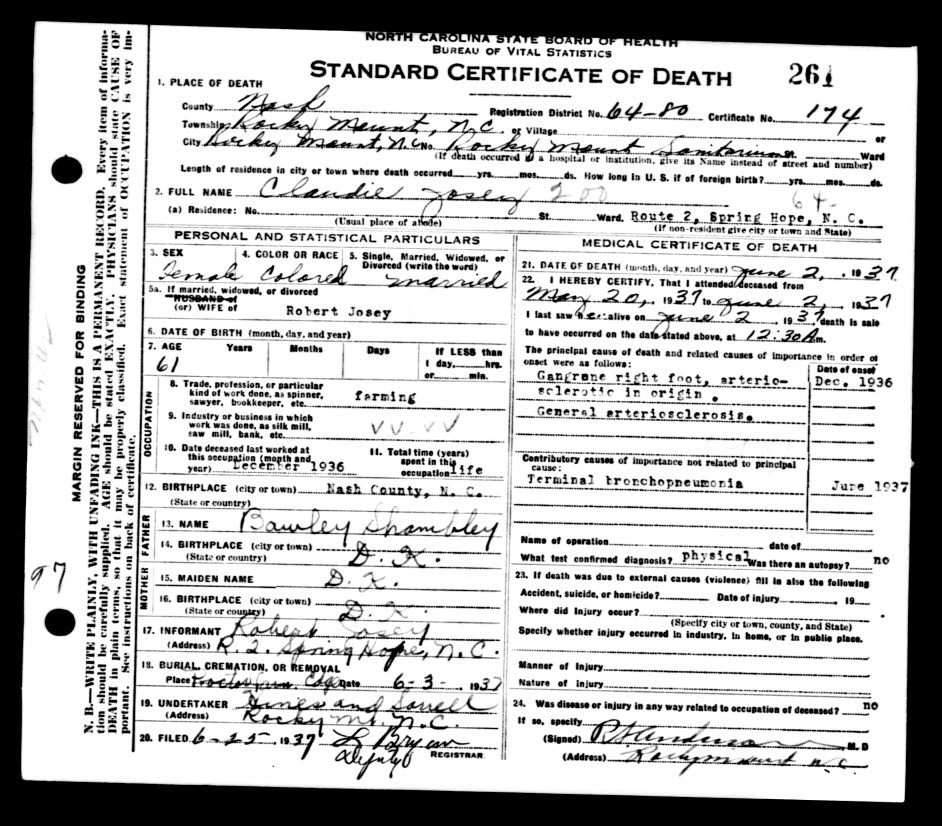 NORTH CAROLINA STATE BOARD OF HEALTH
BUREAU OF VITAL STATISTICS
STANDARD CERTIFICATE OF DEATH 261
1. PLACE OF DEATH
County Nash Registration District No. 64-80 Certificate No. 174
Township Rocky Mount, N.C. or Village or
City Rocky Mount, N.C. No. Rocky Mount Sanitarium St. Ward
(If death occurred in a hospital or institution, give its Name instead of street and number)
Length of residence in city or town where death occurred yrs. mos. ds. How long in U. S. if of foreign birth? yrs. mos. ds.
2. FULL NAME Claudie Josey 200 64-
(a) Residence: No. St. Ward. Route 2, Spring Hope, N. C.
(Usual place of abode) (If non-resident give city or town and State)
PERSONAL AND STATISTICAL PARTICULARS
3. SEX 4. COLOR OR RACE 5. Single, Married, Widowed, or
Divorced (write the word)
Female Colored Married
5a. If married, widowed, or divorced
HUSBAND of
(or) WIFE of Robert Josey
6. DATE OF BIRTH (month, day, and year)
7. AGE Years Months Days If LESS than
61 1 day, hrs.
or min.
OCCUPATION
8. Trade, profession, or particular
kind of work done, as spinner,
sawyer, bookkeeper, etc. farming
9. Industry or business in which
work was done, as silk mill,
saw mill, bank, etc.
10. Date deceased last worked at 11. Total time (years)
this occupation (month and spent in this
year) December 1936 occupation life
12. BIRTHPLACE (city or town) Nash County, N. C.
(State or country)
FATHER
13. NAME Bawley Shambley
14. BIRTHPLACE (city or town) D. K.
(State or country)
MOTHER
15. MAIDEN NAME D. K.
16. BIRTHPLACE (city or town) D. K.
(State or country)
17. INFORMANT Robert Josey
(Address) R. 2. Spring Hope, N. C.
18. BURIAL, CREMATION, OR REMOVAL
Place Date 6-3-, 1937
19. UNDERTAKER Hines and Sorrell
(Address) Rocky Mt. N.C.
20. FILED 6-25, 1937 L Bryan
Deputy REGISTRAR.
MEDICAL CERTIFICATE OF DEATH
21. DATE OF DEATH (month, day, and year) June 2, , 1937
22. I HEREBY CERTIFY. That I attended deceased from
May 20, , 1937 to June 2, , 1937
I last saw her alive on June 2 , 1937, death is said
to have occurred on the date stated above, at 12:30 A.m.
The principal cause of death and related causes of importance in order of
onset were as follows: Date of onset
Gangrene right foot, arterio- Dec. 1936
sclerotic in origin .
General arteriosclerosis.
Contributory causes of importance not related to principal
cause:
Terminal bronchopneumonia June 1937
Name of operation date of
What test confirmed diagnosis? physical Was there an autopsy? no
23. If death was due to external causes (violence) fill in also the following
Accident, suicide, or homicide? Date of injury , 19
Where did injury occur?
(Specify city or town, county, and State)
Specify whether injury occurred in industry, in home, or in public place.
Manner of Injury
Nature of injury
24. Was disease or injury in any way related to occupation of deceased? no
If so, specify
(Signed) M. D
(Address) Rocky mount n c
MARGIN RESERVED FOR BINDING
N. B.—WRITE PLAINLY, WITH UNFADING INK—THIS IS A PERMANENT RECORD. Every item of informa-
tion should be carefully supplied. AGE should be stated EXACTLY. PHYSICIANS should state CAUSE OF
DEATH in plain terms, so that it may be properly classified. Exact statement of OCCUPATION is very im-
portant. See instructions on back of certificate.
97